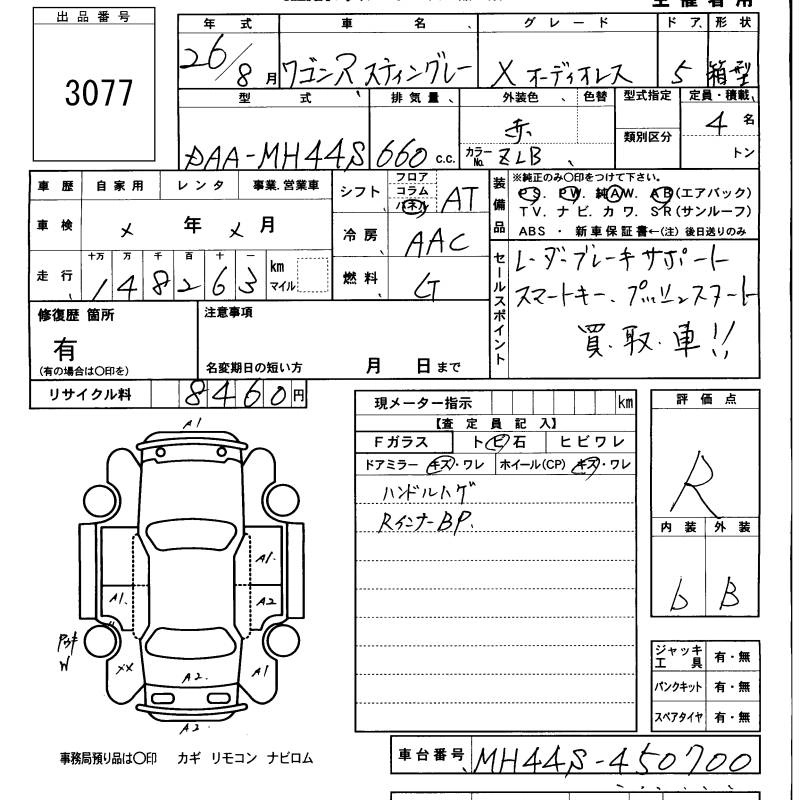 出品番号
3077
年式 車名 グレード ドア 形状
26/8月 ワゴンR スティングレー X オーディオレス 5 箱型
型式 排気量 外装色 色替 型式指定 定員・積載
DAA-MH44S 660 c.c. 赤 4名
カラーNo. ZLB 類別区分 トン
車歴 自家用 レンタ 事業.営業車
車検 × 年 × 月
走行 十万 万 千 百 十 一
148263 km マイル
シフト フロア コラム パネル AT
冷房 AAC
燃料 G
装備品
※純正のみ○印をつけて下さい。
PS. PW. 純AW. AB(エアバック)
TV. ナビ. カワ. SR(サンルーフ)
ABS ・ 新車保証書←(注) 後日送りのみ
セールスポイント
レーダーブレーキサポート
スマートキー、プッシュスタート
買.取.車!!
修復歴 箇所
有
(有の場合は○印を)
注意事項
名変期日の短い方 月 日まで
リサイクル料 8460円
現メーター指示 km
【査定員記入】
Fガラス トビ石 ヒビワレ
ドアミラー キズ・ワレ ホイール(CP) キズ・ワレ
ハンドルハゲ
RインナーBP.
評価点
R
内装 外装
b B
A1
A1.
A1. A2
W
XX A2. A1
A2.
ジャッキ工具 有・無
パンクキット 有・無
スペアタイヤ 有・無
事務局預り品は○印 カギ リモコン ナビロム
車台番号 MH44S-450700